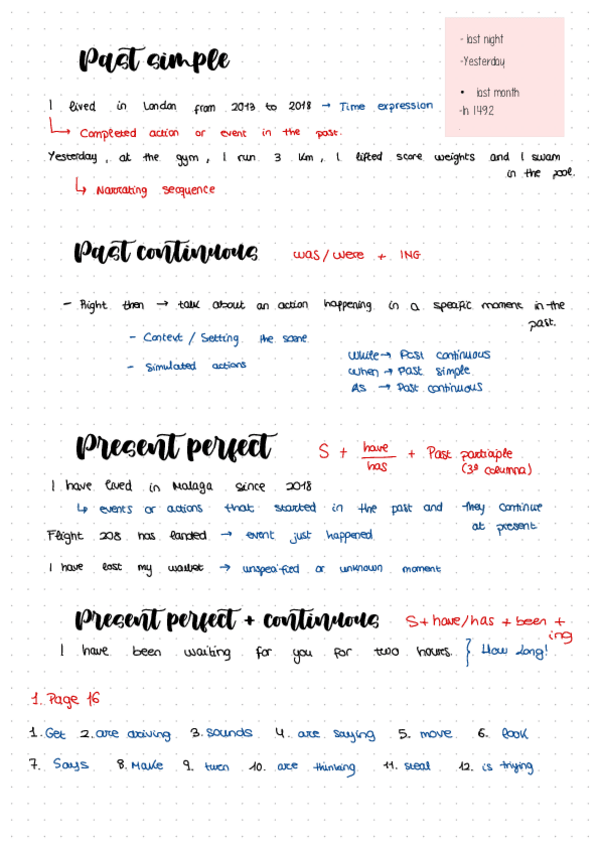 Past simple
- last night
-Yesterday
• last month
-In 1492
I lived in London from 2013 to 2018 → Time expression
↳ Completed action or event in the past.
Yesterday, at the gym, I run 3 Km, I lifted some weights and I swam
in the pool.
↳ Narrating sequence
Past continuous was/were + ING
- Right then → talk about an action happening in a specific moment in the
past.
- Context / Setting the scene
- Simulated actions
While → Past continuous
When → Past simple
As → Past continuous
Present perfect S + have/has + Past participle
(3ª columna)
I have lived in Malaga since 2018
↳ events or actions that started in the past and they continue
at present
Flight 208 has landed → event just happened
I have lost my wallet → unspecified or unknown moment
Present perfect + continuous S+ have/has + been +
ing
I have been waiting for you for two hours. } How long!
1. Page 16
1. Get 2. are driving 3. sounds 4. are saying 5. move 6. look
7. Says 8. Make 9. turn 10. are thinking 11. steal 12. is trying